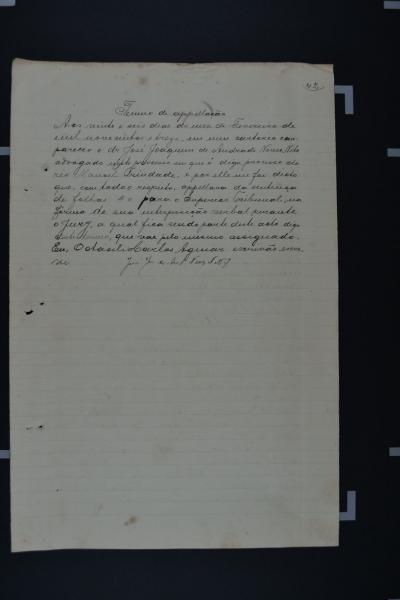 Termo de appellação
Aos vinte e seis dias do mez de Fevereiro de
mil novecentos e treze, em meu cartorio com-
pareceo o dr. José Joaquim de Andrade Neves Netto
advogado que é digo processo do
réo Manoel Trindade, e por elle me foi dicto
que, com todo o respeito, appellava da sentença
de folhas 40 para o Superior Tribunal, na
forma de sua interposição verbal perante
o Jury, a qual fica sendo parte deste acto digo
deste Termo, que vae pelo mesmo assignado.
Eu, Carlos Aguiar escrivão escre-
vi